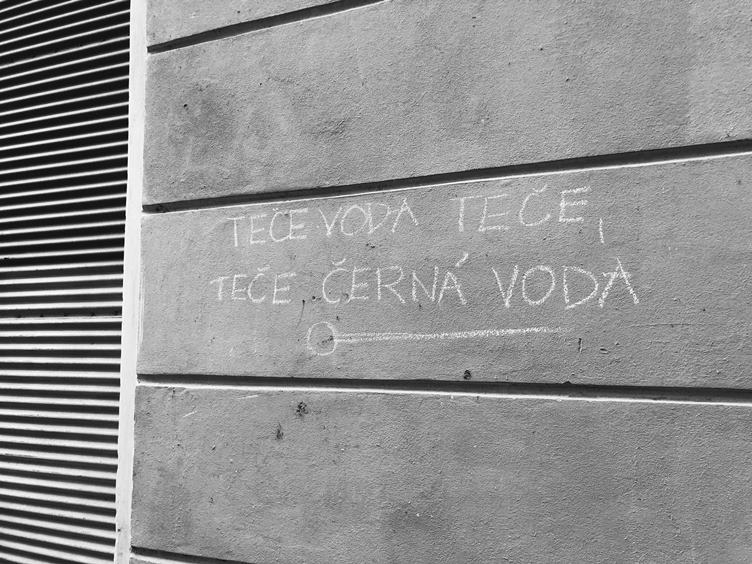 TEČE VODA TEČE,
TEČE ČERNÁ VODA